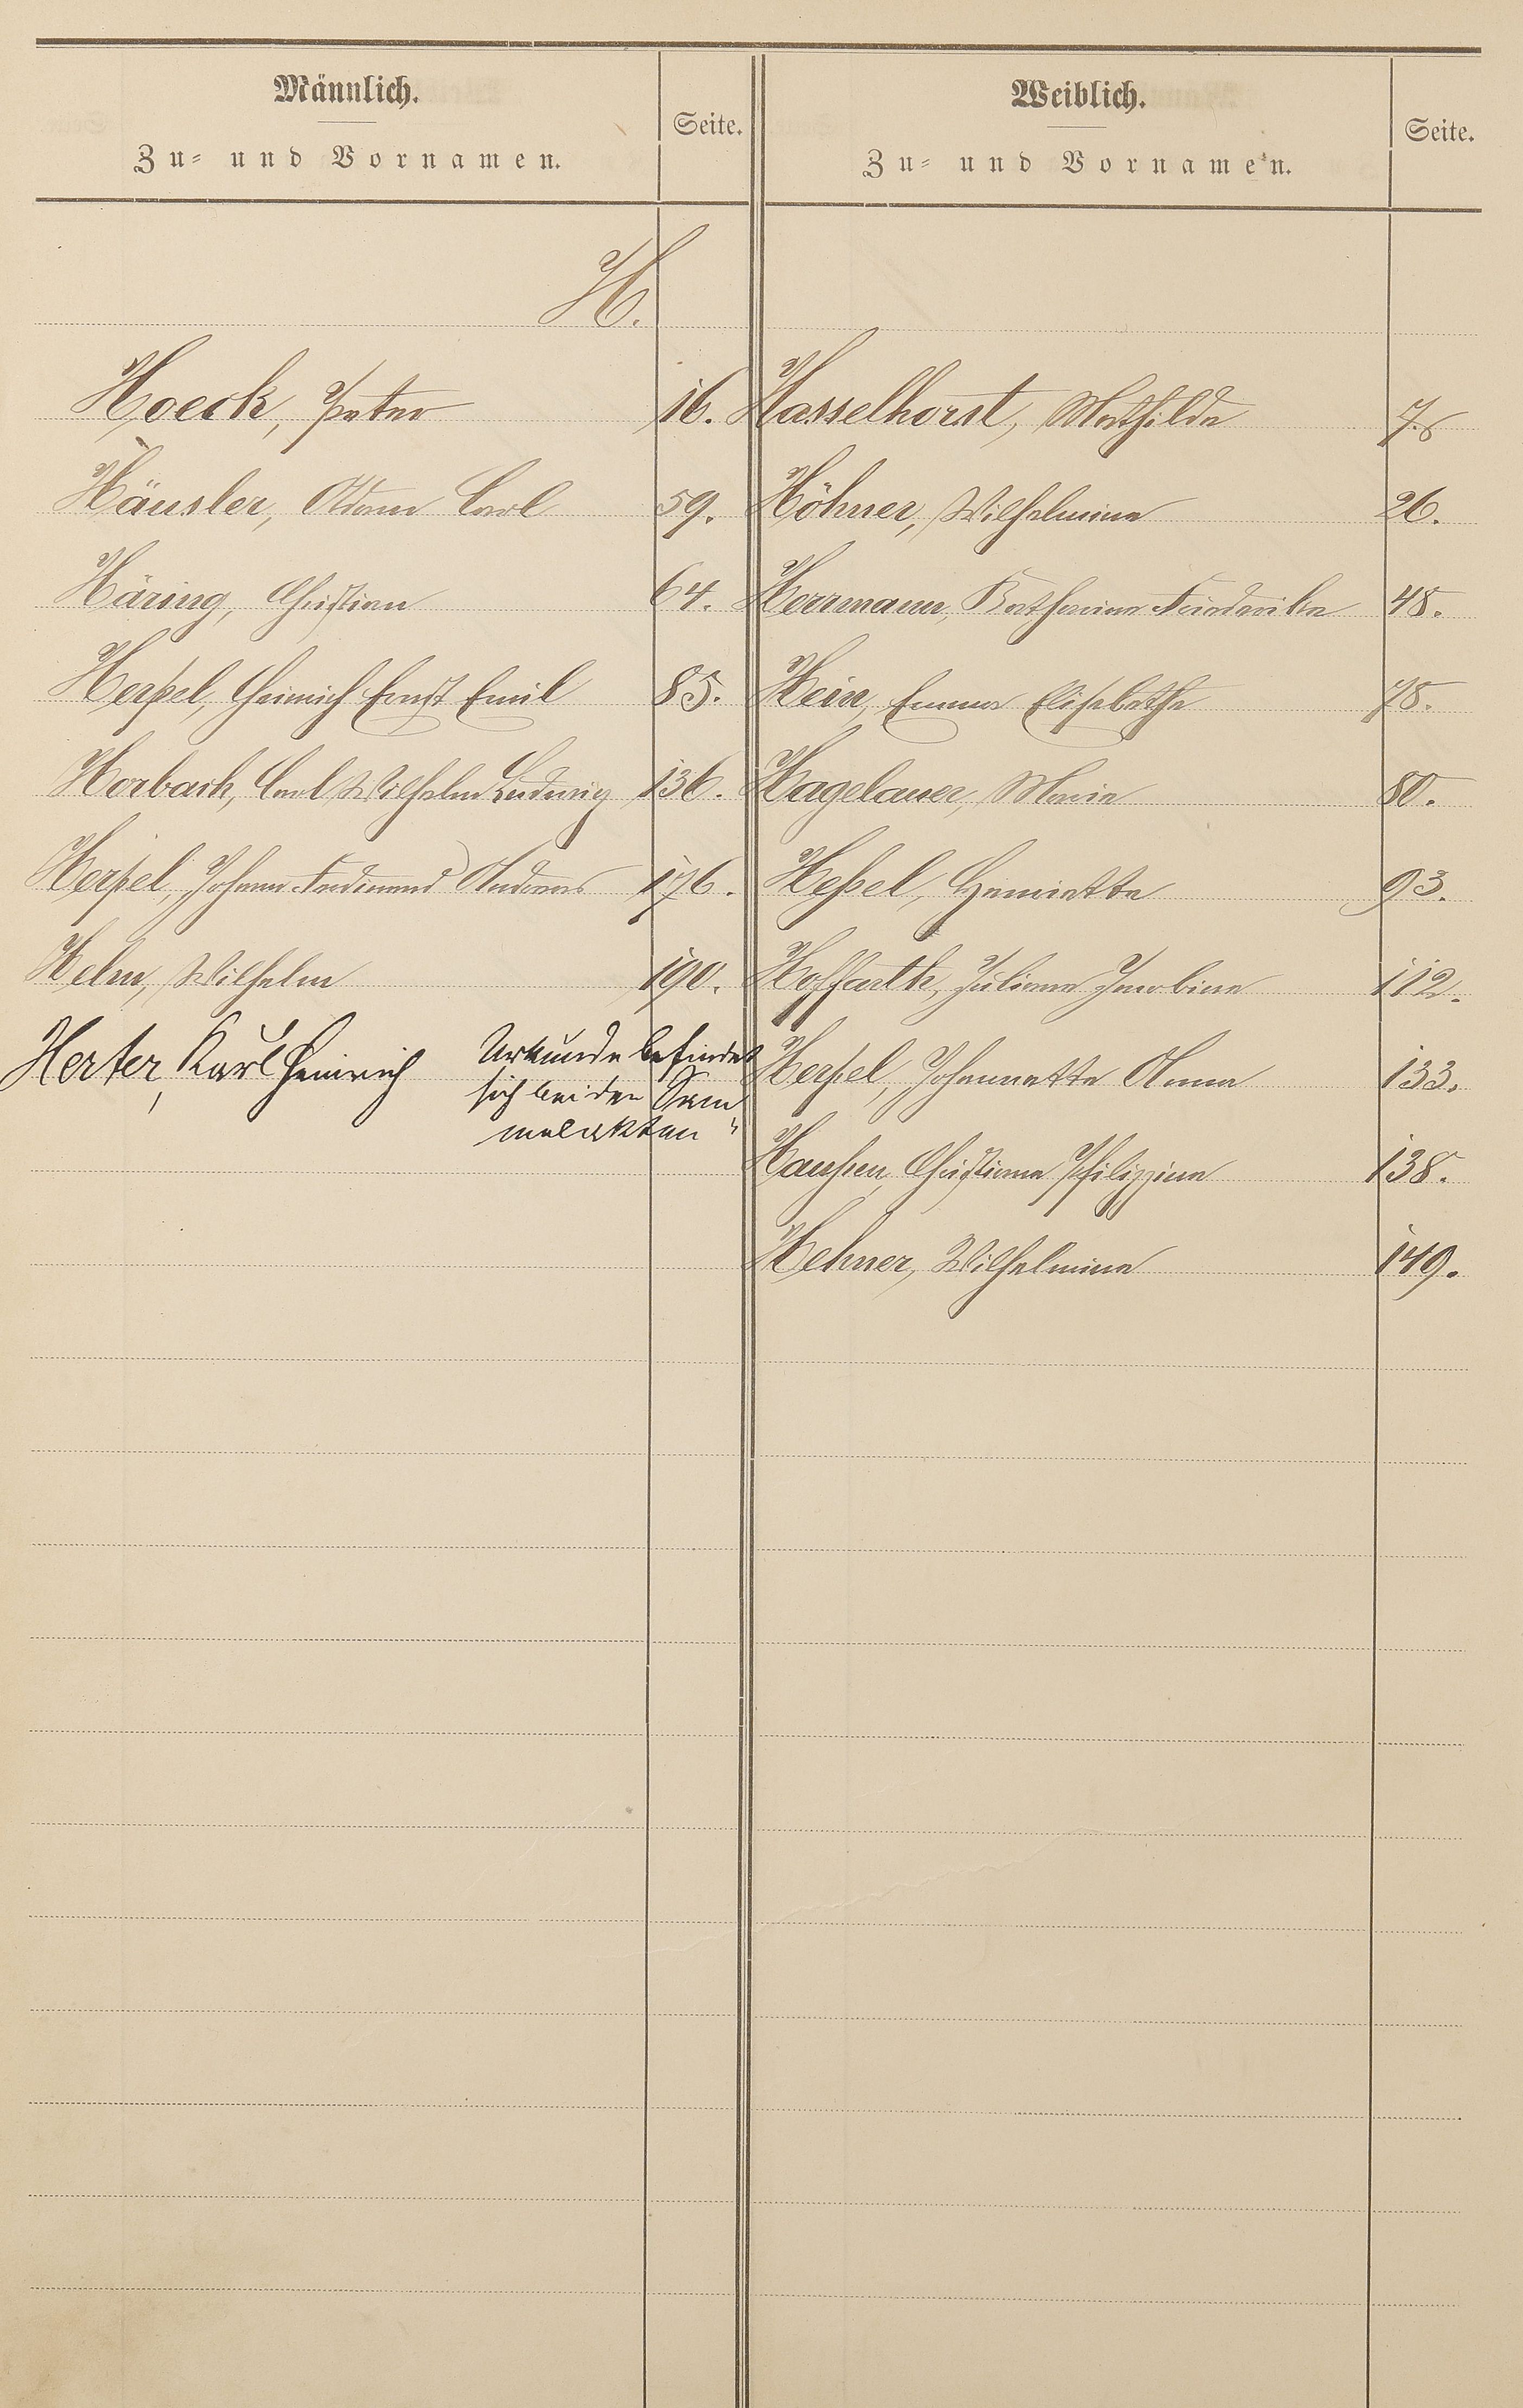 Männlich.
Zu- und Vornamen.
Seite.
Weiblich.
Zu- und Vornamen.
Seite.
H.
Hoeck, Peter 16.
Häusler, Adam Carl 59.
Häring, Christian 64.
Herpel, Heinrich Ernst Emil 85.
Horbach, Carl Wilhelm Ludwig 136.
Herpel, Johann Ferdinand Andreas 176.
Helm, Wilhelm 190.
Herter, Karl Heinrich Urkunde befindet
sich bei den Sam
melakten
Hasselhorst, Mathilde 7.
Höhner, Wilhelmine 26.
Herrmann, Katharina Friederike 48.
Hein, Emma Elisabethe 78.
Hagelauer, Maria 80.
Heßel, Henriette 93.
Hoffarth, Juliane Jacobine 112.
Herpel, Johannette Anna 133.
Christiane Philippine 138.
Hehner, Wilhelmine 149.